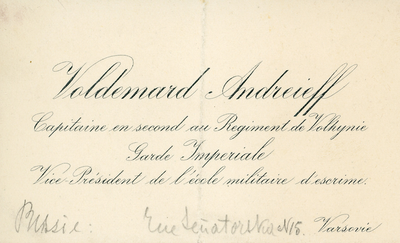 Voldemard Andreieff
Capitaine en second au Regiment de Volhynie
Garde Imperiale
Vice-Président de l'école militaire d'escrime.
Russie: Rue Senatorska N15. Varsovie